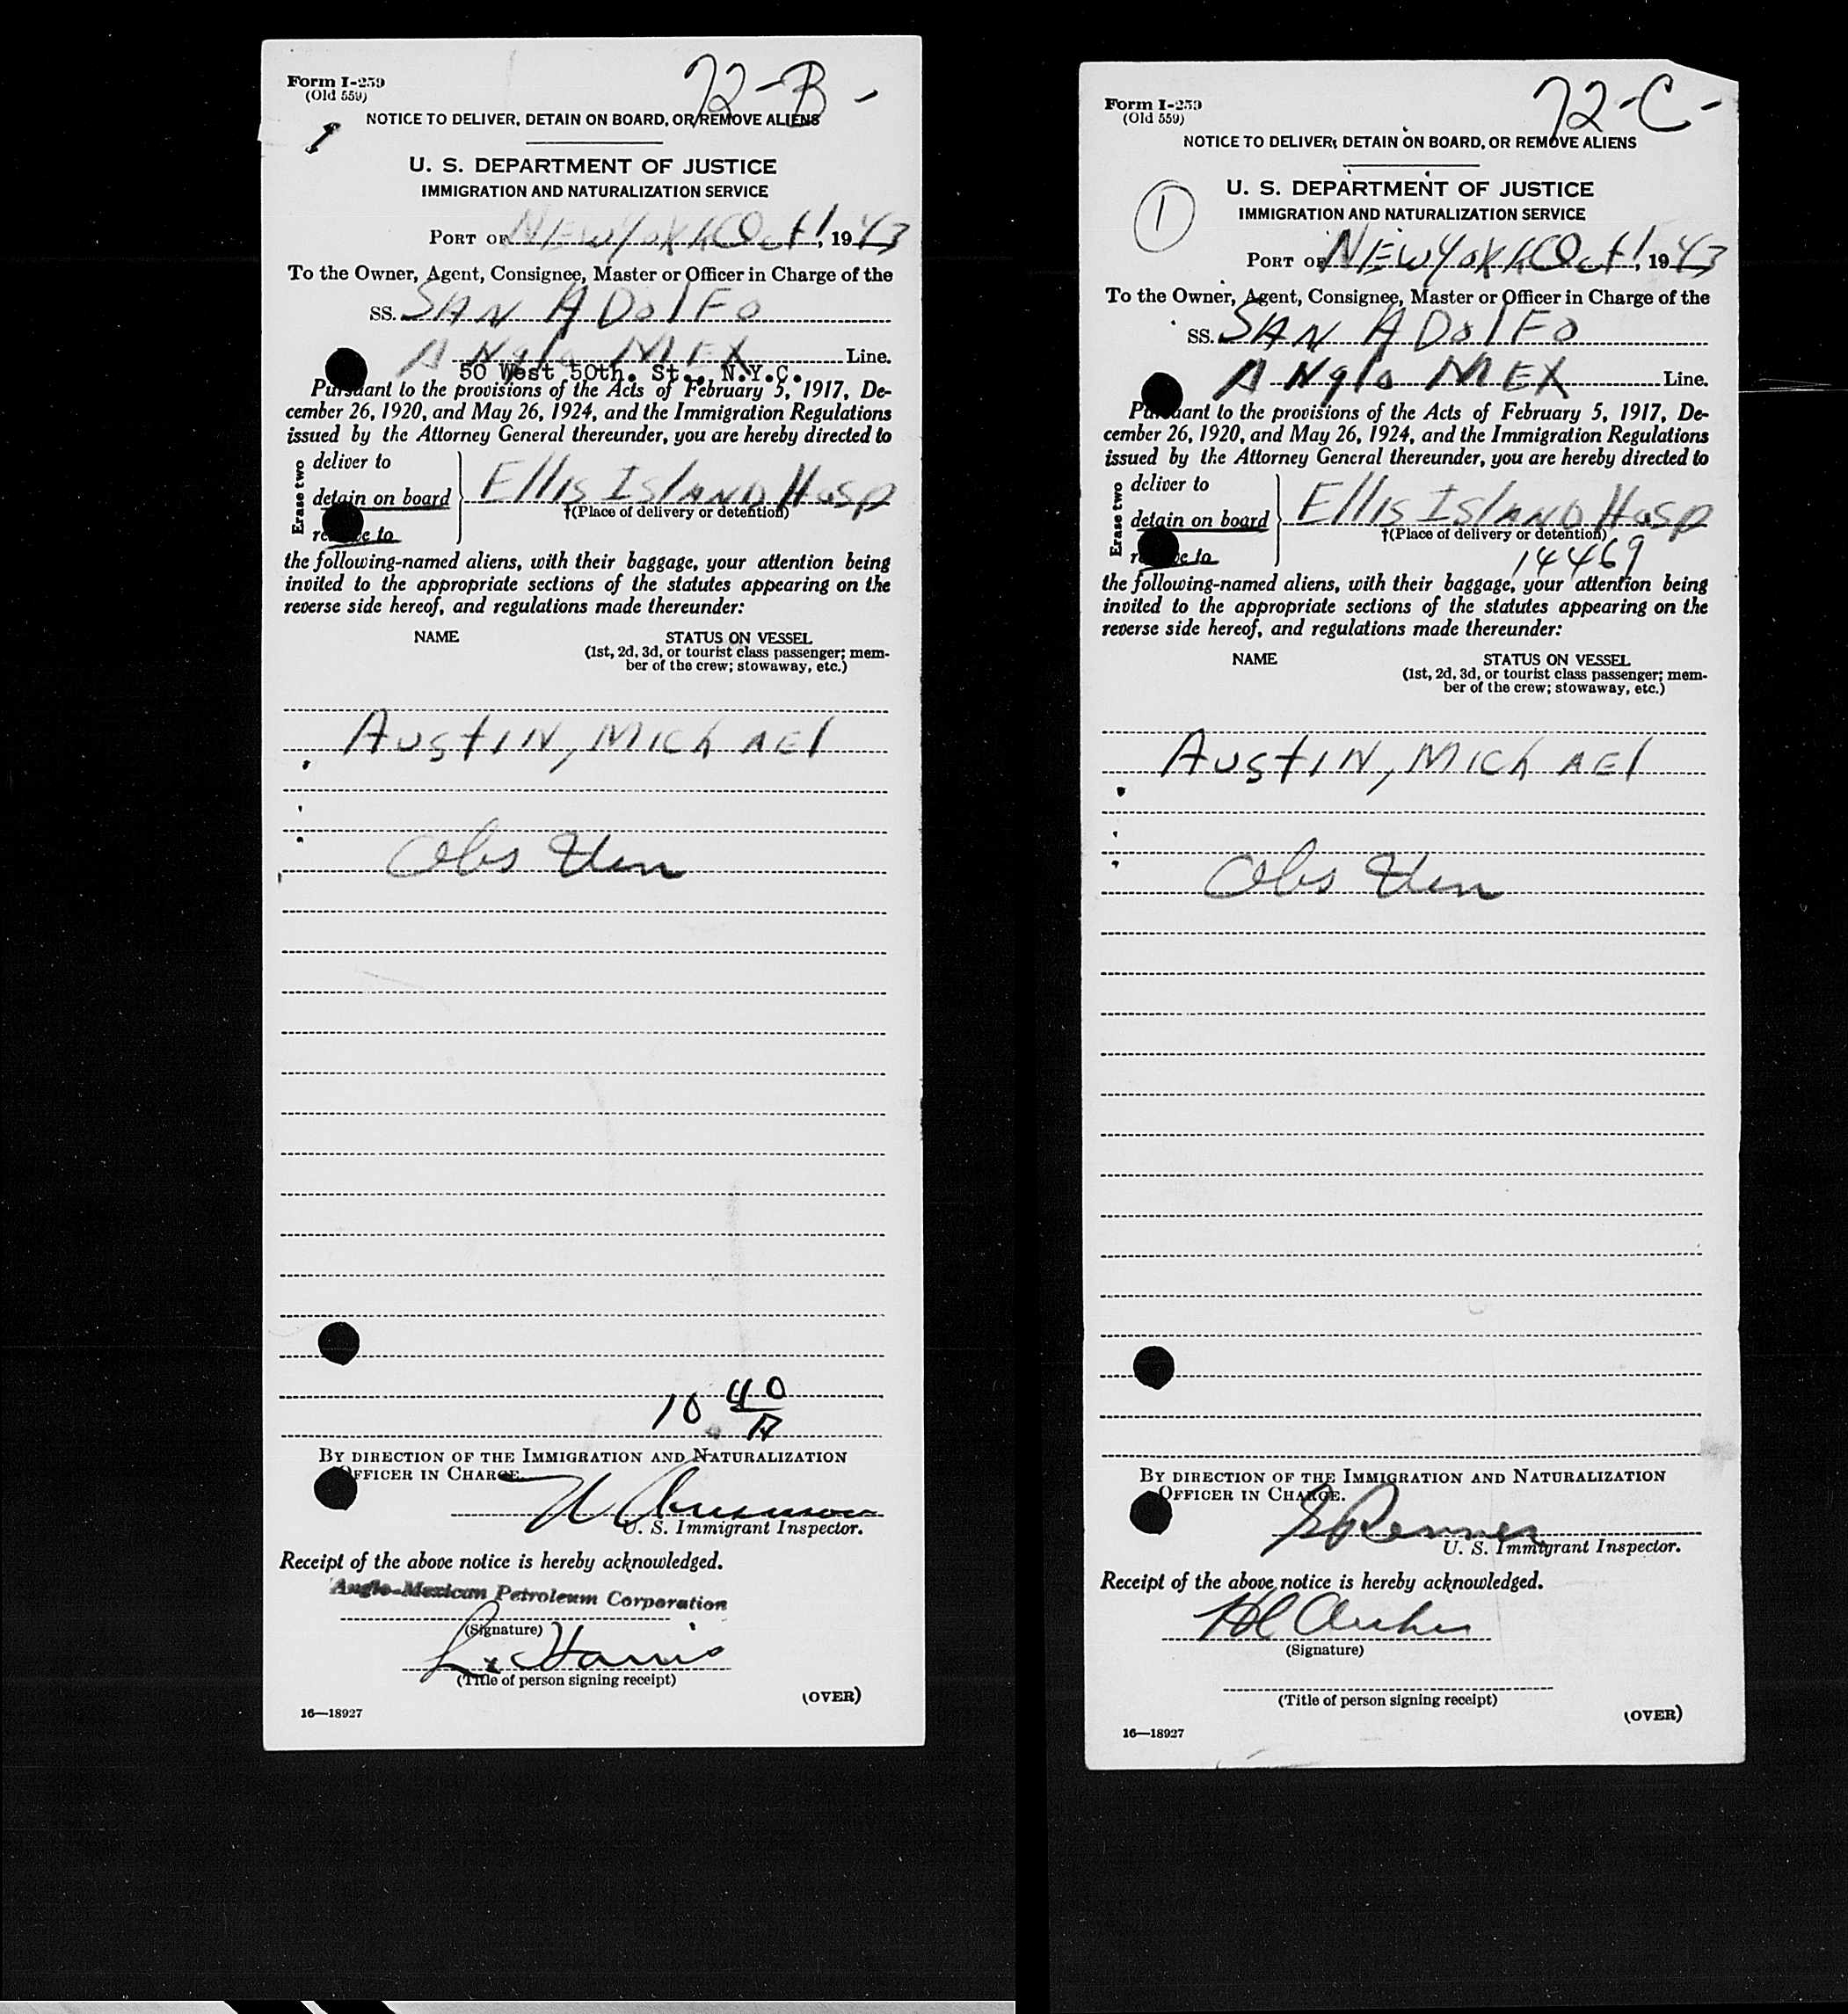 72-B-
Form I-259
(Old 559)
NOTICE TO DELIVER, DETAIN ON BOARD, OR REMOVE ALIENS
1
U. S. DEPARTMENT OF JUSTICE
IMMIGRATION AND NATURALIZATION SERVICE
PORT OF NEW York Oct 1, 1943
To the Owner, Agent, Consignee, Master or Officer in Charge of the
SS. SAN ADolFo
ANglo MEX Line.
50 West 50th. St., N.Y.C.
Pursuant to the provisions of the Acts of February 5, 1917, De-
cember 26, 1920, and May 26, 1924, and the Immigration Regulations
issued by the Attorney General thereunder, you are hereby directed to
Erase two
deliver to
detain on board
remove to
Ellis Island Hosp
†(Place of delivery or detention)
the following-named aliens, with their baggage, your attention being
invited to the appropriate sections of the statutes appearing on the
reverse side hereof, and regulations made thereunder:
NAME
STATUS ON VESSEL
(1st, 2d, 3d, or tourist class passenger; mem-
ber of the crew; stowaway, etc.)
AUSTIN, MICHAEL
Obs Ven
10 40/A
BY DIRECTION OF THE IMMIGRATION AND NATURALIZATION
OFFICER IN CHARGE.
U. S. Immigrant Inspector.
Receipt of the above notice is hereby acknowledged.
Anglo-Mexican Petroleum Corporation
(Signature)
L. Harris
(Title of person signing receipt)
(OVER)
16—18927
72-C-
Form I-259
(Old 559)
NOTICE TO DELIVER, DETAIN ON BOARD, OR REMOVE ALIENS
1
U. S. DEPARTMENT OF JUSTICE
IMMIGRATION AND NATURALIZATION SERVICE
PORT OF NEW York Oct 1, 1943
To the Owner, Agent, Consignee, Master or Officer in Charge of the
SS. SAN ADolFo
ANglo MEX Line.
Pursuant to the provisions of the Acts of February 5, 1917, De-
cember 26, 1920, and May 26, 1924, and the Immigration Regulations
issued by the Attorney General thereunder, you are hereby directed to
Erase two
deliver to
detain on board
remove to
Ellis Island Hosp
†(Place of delivery or detention)
14469
the following-named aliens, with their baggage, your attention being
invited to the appropriate sections of the statutes appearing on the
reverse side hereof, and regulations made thereunder:
NAME
STATUS ON VESSEL
(1st, 2d, 3d, or tourist class passenger; mem-
ber of the crew; stowaway, etc.)
AUSTIN, MICHAEL
Obs Ven
BY DIRECTION OF THE IMMIGRATION AND NATURALIZATION
OFFICER IN CHARGE.
U. S. Immigrant Inspector.
Receipt of the above notice is hereby acknowledged.
(Signature)
(Title of person signing receipt)
(OVER)
16—18927